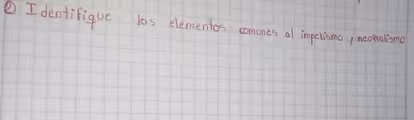 ② Identifique los elementos comones al imperismo y neocnalismo